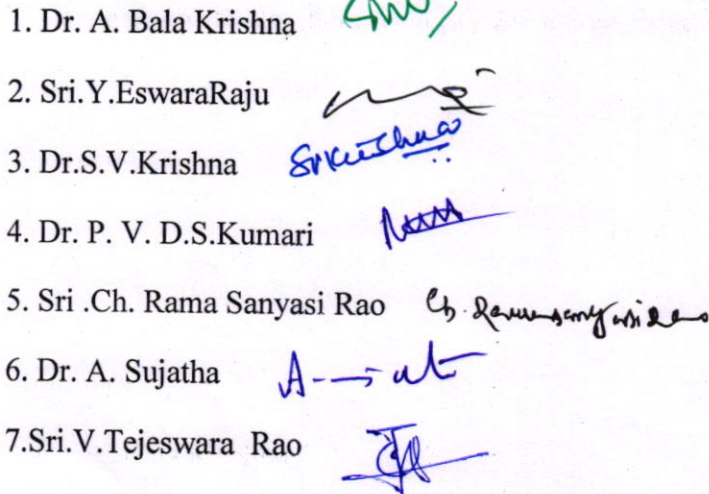 1. Dr. A. Bala Krishna
2. Sri.Y.EswaraRaju
3. Dr.S.V.Krishna SVKrishna
4. Dr. P. V. D.S.Kumari
5. Sri .Ch. Rama Sanyasi Rao Ch. Ramasanyasi Rao
6. Dr. A. Sujatha
7.Sri.V.Tejeswara Rao